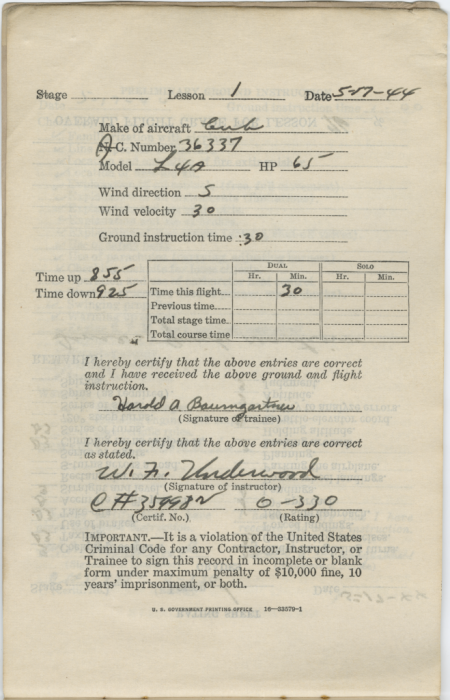 Stage Lesson 1 Date 5-27-44
Make of aircraft Cub
N.C. Number 36337
Model L4A HP 65
Wind direction S
Wind velocity 30
Ground instruction time :30
Time up 855
Time down 925
DUAL SOLO
Hr. Min. Hr. Min.
Time this flight 30
Previous time
Total stage time
Total course time
I hereby certify that the above entries are correct
and I have received the above ground and flight
instruction.
Harold A Baumgartner
(Signature of trainee)
I hereby certify that the above entries are correct
as stated.
W. F. Underwood
(Signature of instructor)
O-330
(Certif. No.) (Rating)
IMPORTANT.—It is a violation of the United States
Criminal Code for any Contractor, Instructor, or
Trainee to sign this record in incomplete or blank
form under maximum penalty of $10,000 fine, 10
years' imprisonment, or both.
U. S. GOVERNMENT PRINTING OFFICE 16-33079-1